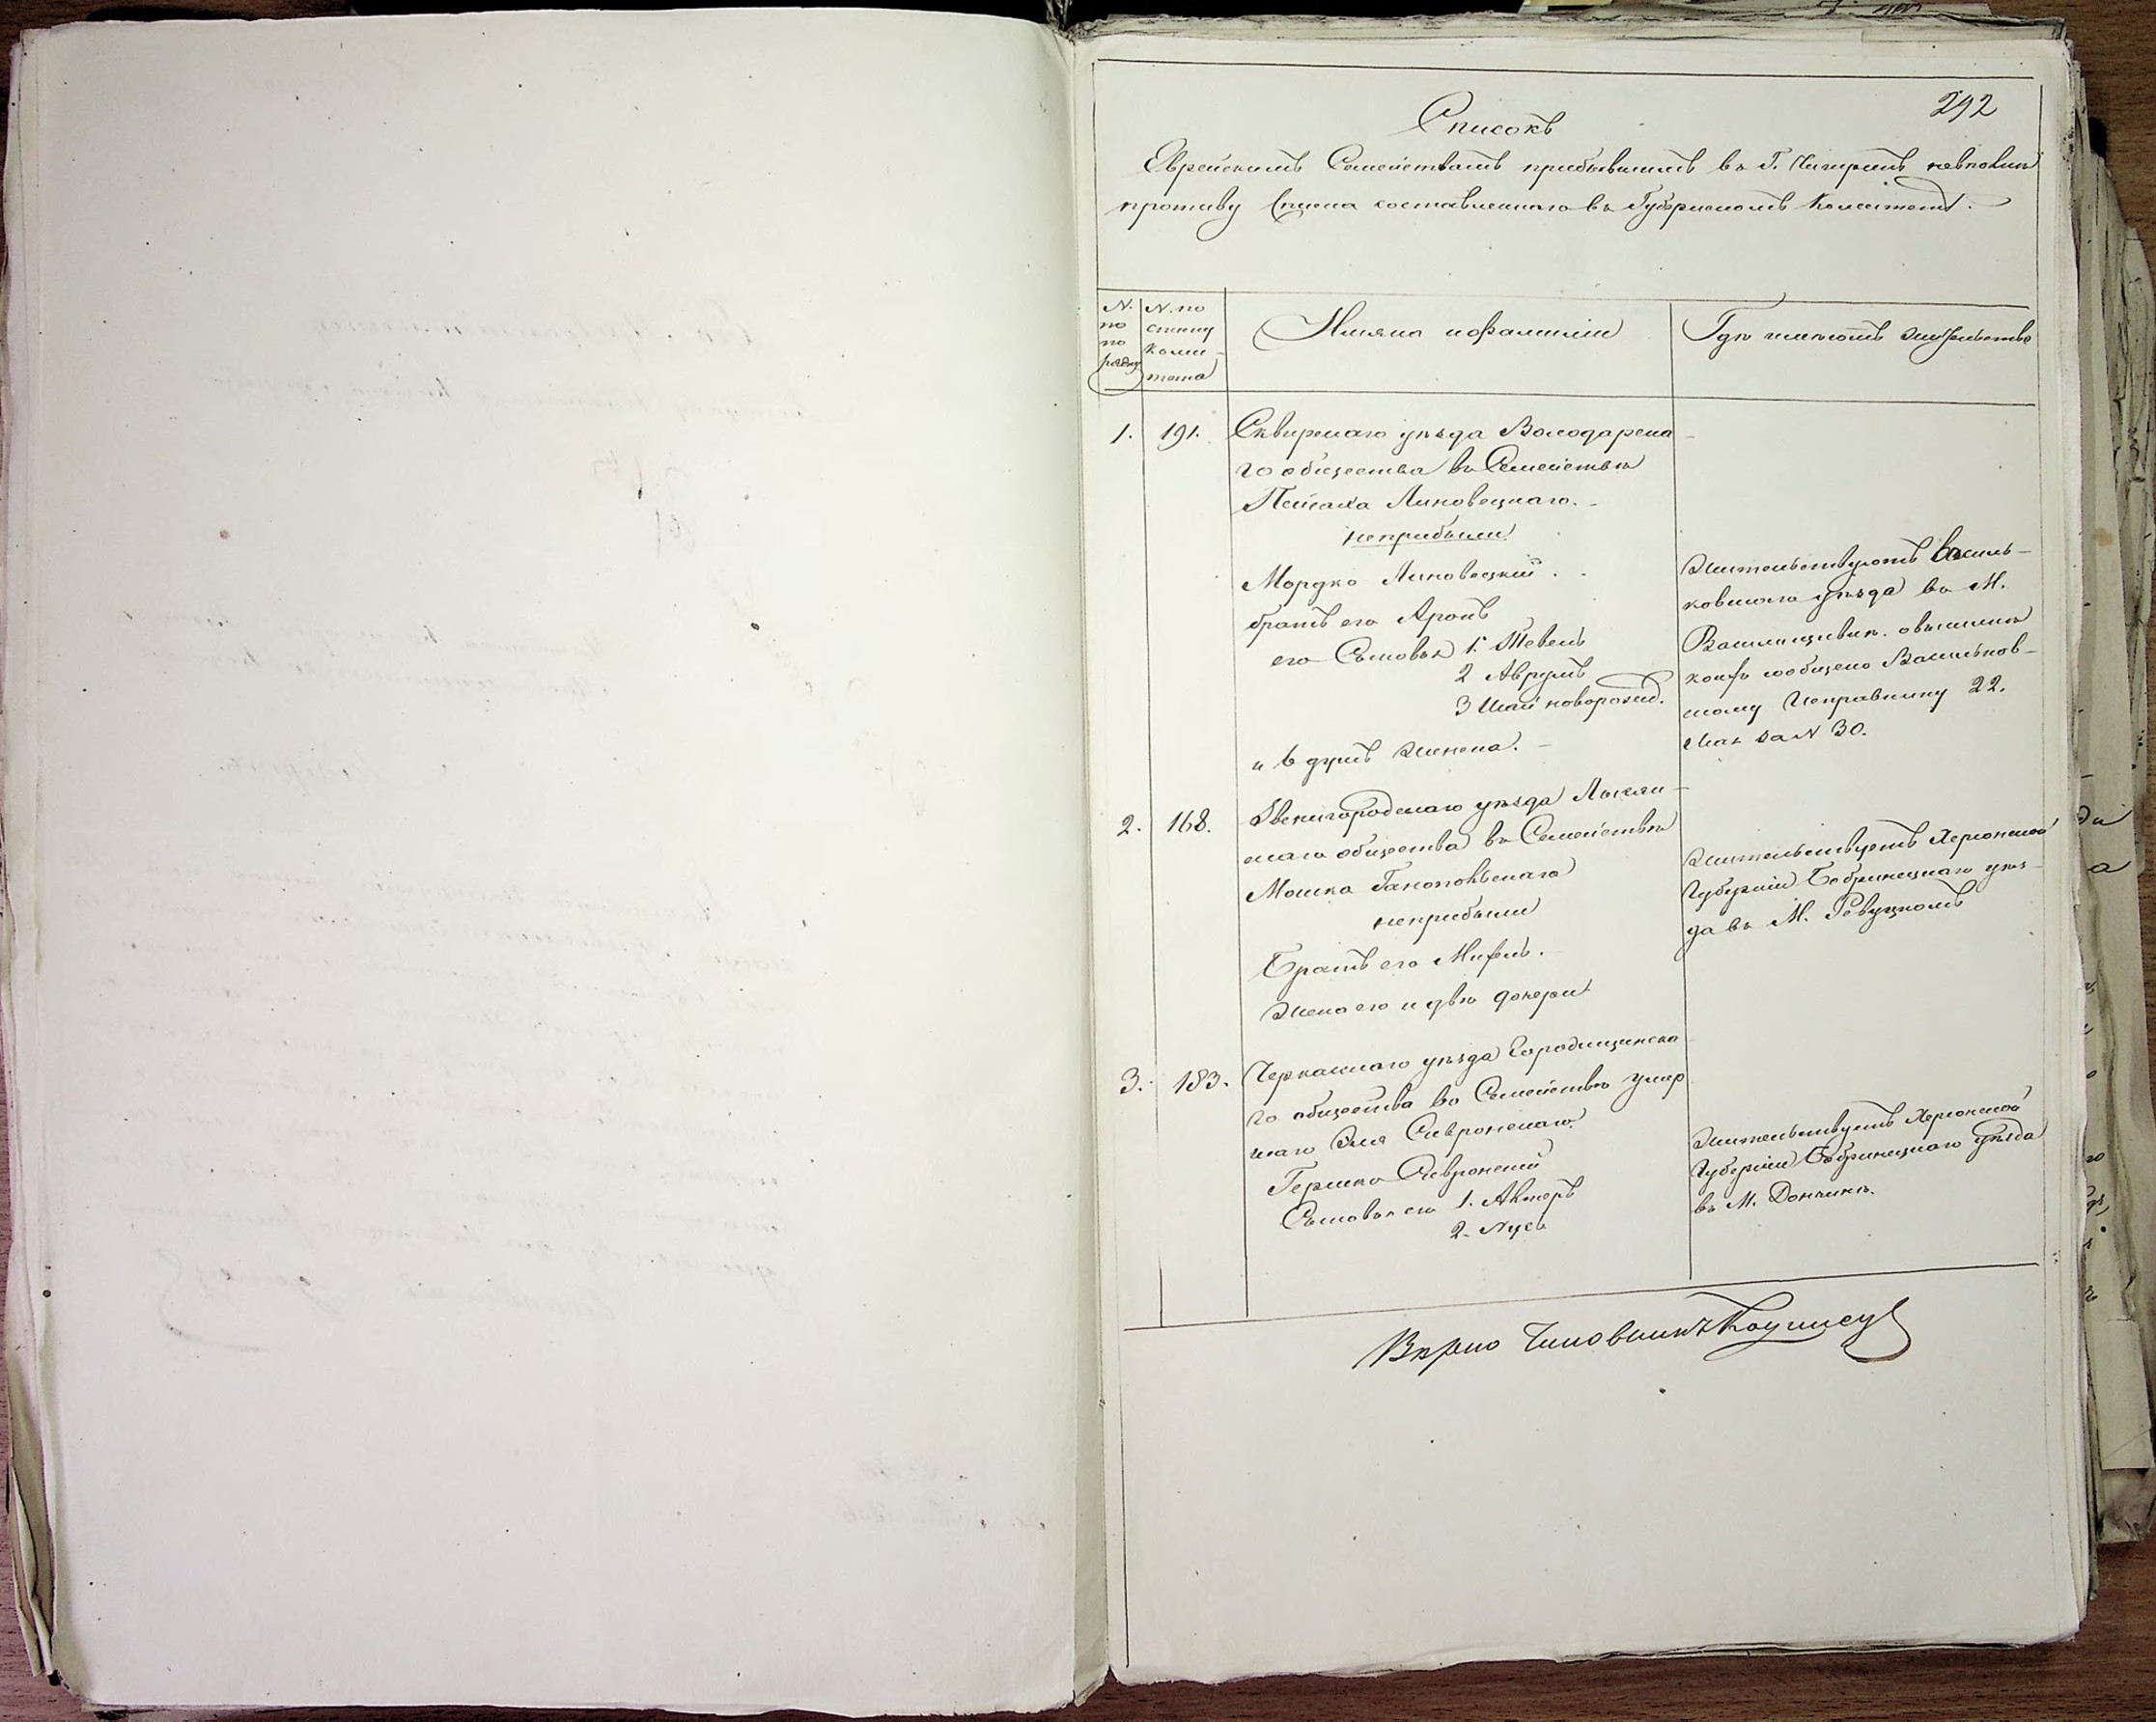 292
Списокъ
Еврейскимъ Семействамъ прибывшимъ въ Г. Чигиринъ
противу Списка составленнаго въ Губернскомъ Комитетѣ.
N. по порядку
N. по списку комитета
Имяна и фамиліи
Гдѣ имѣютъ жительство
1.
191.
Сквирскаго уѣзда Володарска
го общества въ Семействѣ
Пейсаха Липовецкаго.
неприбыли
Мордко Липовецкій.
братъ его Аронъ
его Сыновья 1. Шевель
2 Аврумъ
3 Шай новорожд.
и 6 душъ женска.
Жительствуютъ Василь-
ковскаго уѣзда въ М.
о высылкѣ
коихъ сообщено Васильков-
скому Исправнику 22.
Мая за N 30.
2.
168.
Звенигородскаго уѣзда Лысян-
скаго общества въ Семействѣ
Мошка Гапоновскаго
неприбыли
Братъ его
Жена его и двѣ дочери
Жительствуетъ Херсонской
Губерніи Бобринецкаго уѣз-
да въ М. Ревуцкомъ
3.
183.
Черкаскаго уѣзда Городищинска
го общества во Семействѣ умер
шаго Эля Сивронскаго
Гершко Сивронскій
Сыновья его 1.
2. Нусь
Жительствуетъ Херсонской
Губерніи Бобринецкаго уѣзда
въ М.
Вѣрно Чиновникъ